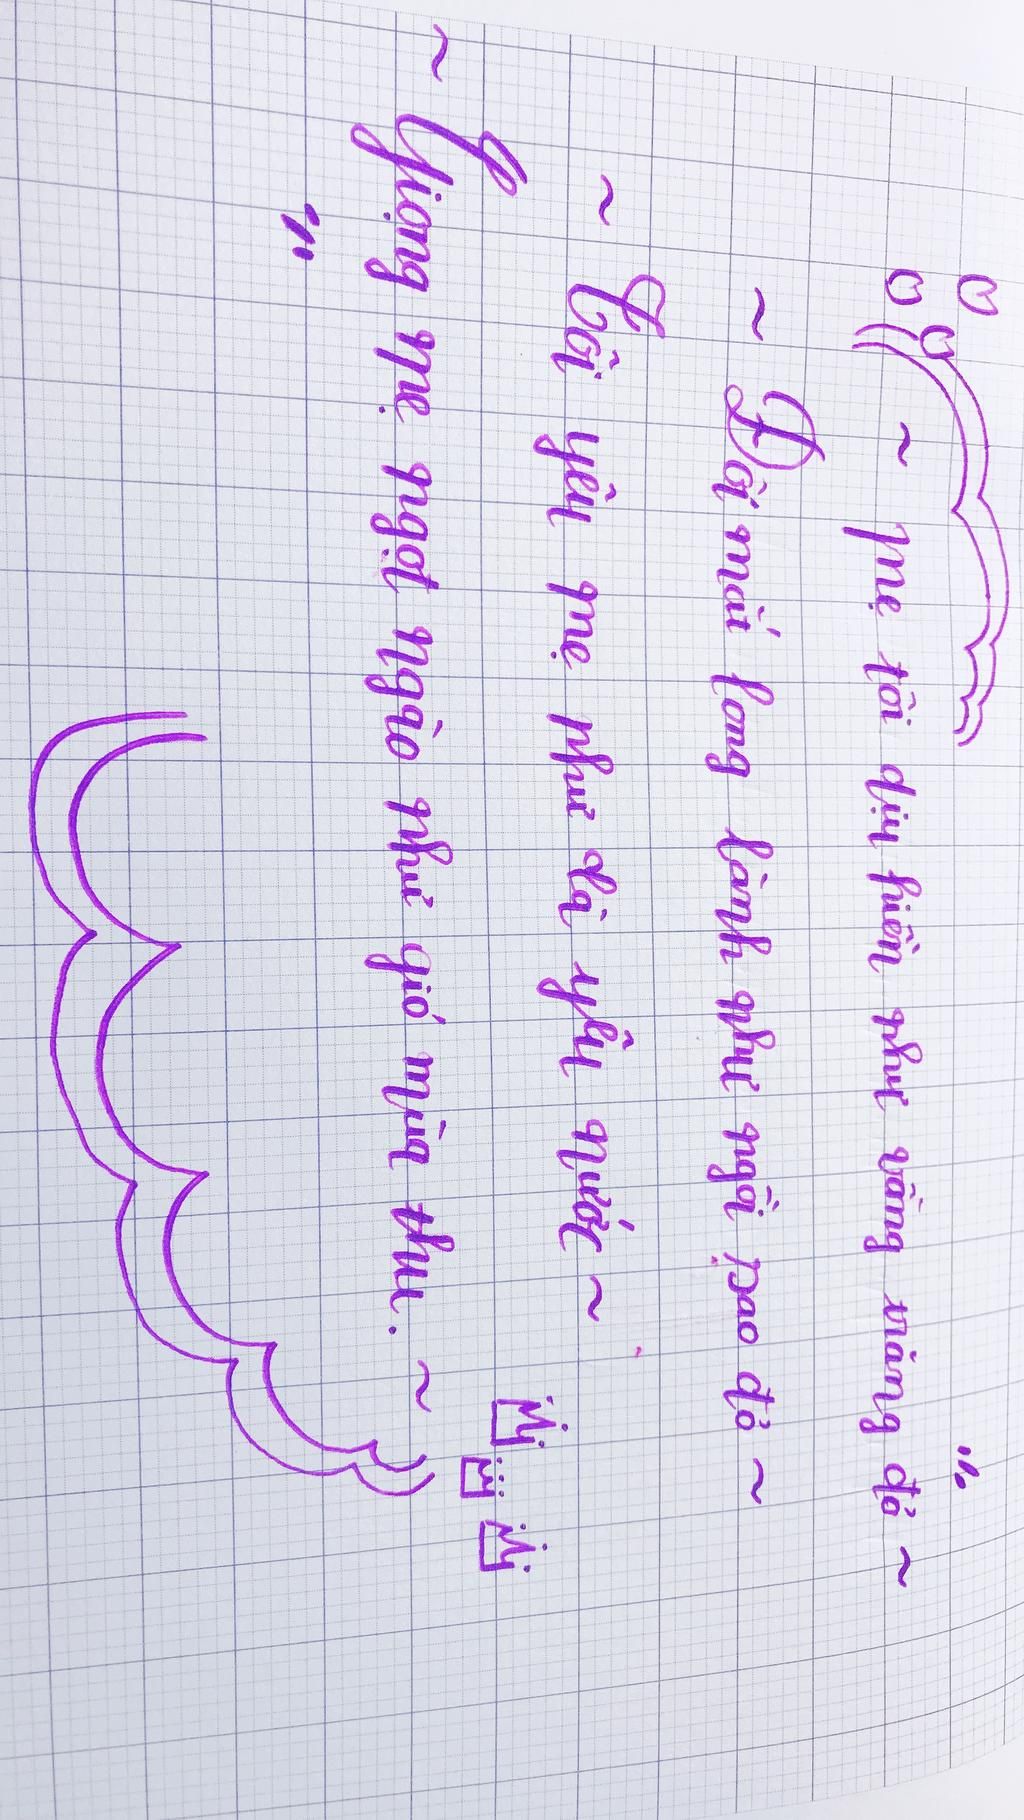 ~ Mẹ tôi dịu hiền như vầng trăng đỏ ~ "
~ Đôi mắt long lanh như ngôi sao đỏ ~
~ Tôi yêu mẹ như là yêu nước ~
~ Giọng mẹ ngọt ngào như gió mùa thu. ~
"